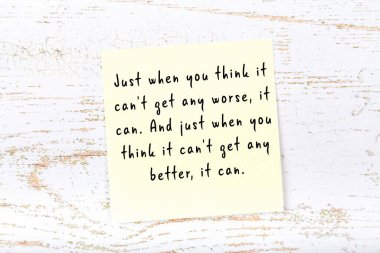 Just when you think it
can't get any worse, it
can. And just when you
think it can't get any
better, it can.